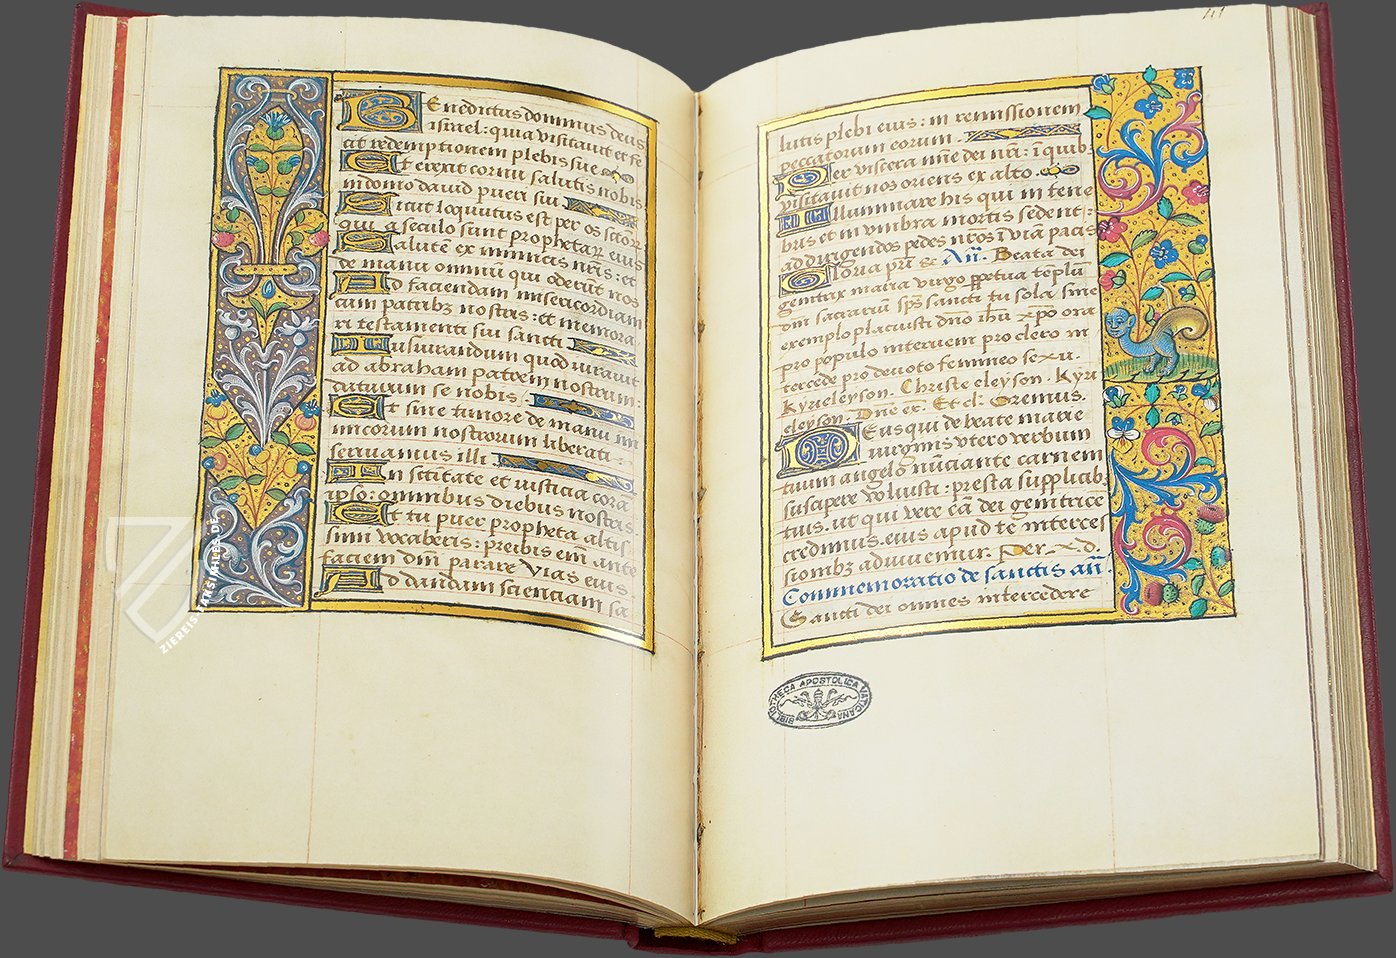 Benedictus dominus deus
israel: quia visitauit et fe
cit redemptionem plebis sue
Et erexit cornu salutis nobis
in domo dauid pueri sui
Sicut loquutus est per os sctorr
qui a seculo sunt prophetar eius
Salutem ex inimicis nris: et
de manu omniũ qui oderut nos
Ad faciendam misericordiam
cum patribz nostris: et memora
ri testamenti sui sancti
Iusiurandum quod iurauit
ad abraham patrem nostrum:
daturum se nobis.
Et sine timore de manu ini
micorum nostrorum liberati.
seruiamus illi.
In sctitate et iusticia corã
ipso: omnibus diebus nostris.
Et tu puer propheta altis
simi vocaberis: preibis em̃ ante
faciem dm̃ parare vias eius.
Ad dandam scientiam sa
41
lutis plebi eius: in remissionem
peccatorum eorum.
Per viscera mie dei nr̃i: ĩ quib
visitauit nos oriens ex alto.
Illuminare his qui in tene
bris et in vmbra mortis sedent:
ad dirigendos pedes nr̃os ĩ viã pacis
Gloria pr̃i &c Añ. Beata dei
genitrix maria virgo ppetua teplũ
dm̃ sacrariũ sp̃s sancti tu sola sine
exemplo placuisti dño ihũ xpõ ora
pro populo interueni pro clero in
tercede pro deuoto femineo sexu.
Kyrieleyson. Christe eleyson. Kyri
eleyson. Dñe ex. Et cl. Oremus.
Deus qui de beate marie
virginis vtero verbum
tuum angelo nũciante carnem
suscipere voluisti: presta supplicib
tuis. ut qui vere eã dei genitrice
credimus. eius apud te interces
sionibz adiuuemur. Per x. d.
Commemoratio de sanctis añ.
Sancti dei omnes intercedere
BIBLIOTHECA APOSTOLICA VATICANA
ZIEREIS
FAKSIMILES.DE